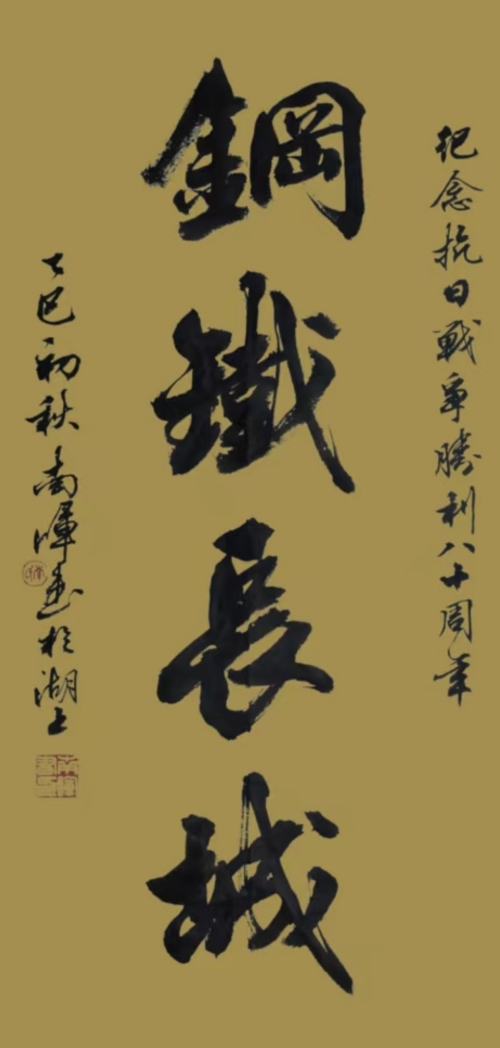 紀念抗日戰爭勝利八十周年
鋼鐵長城
乙巳初秋南暉書於湖上